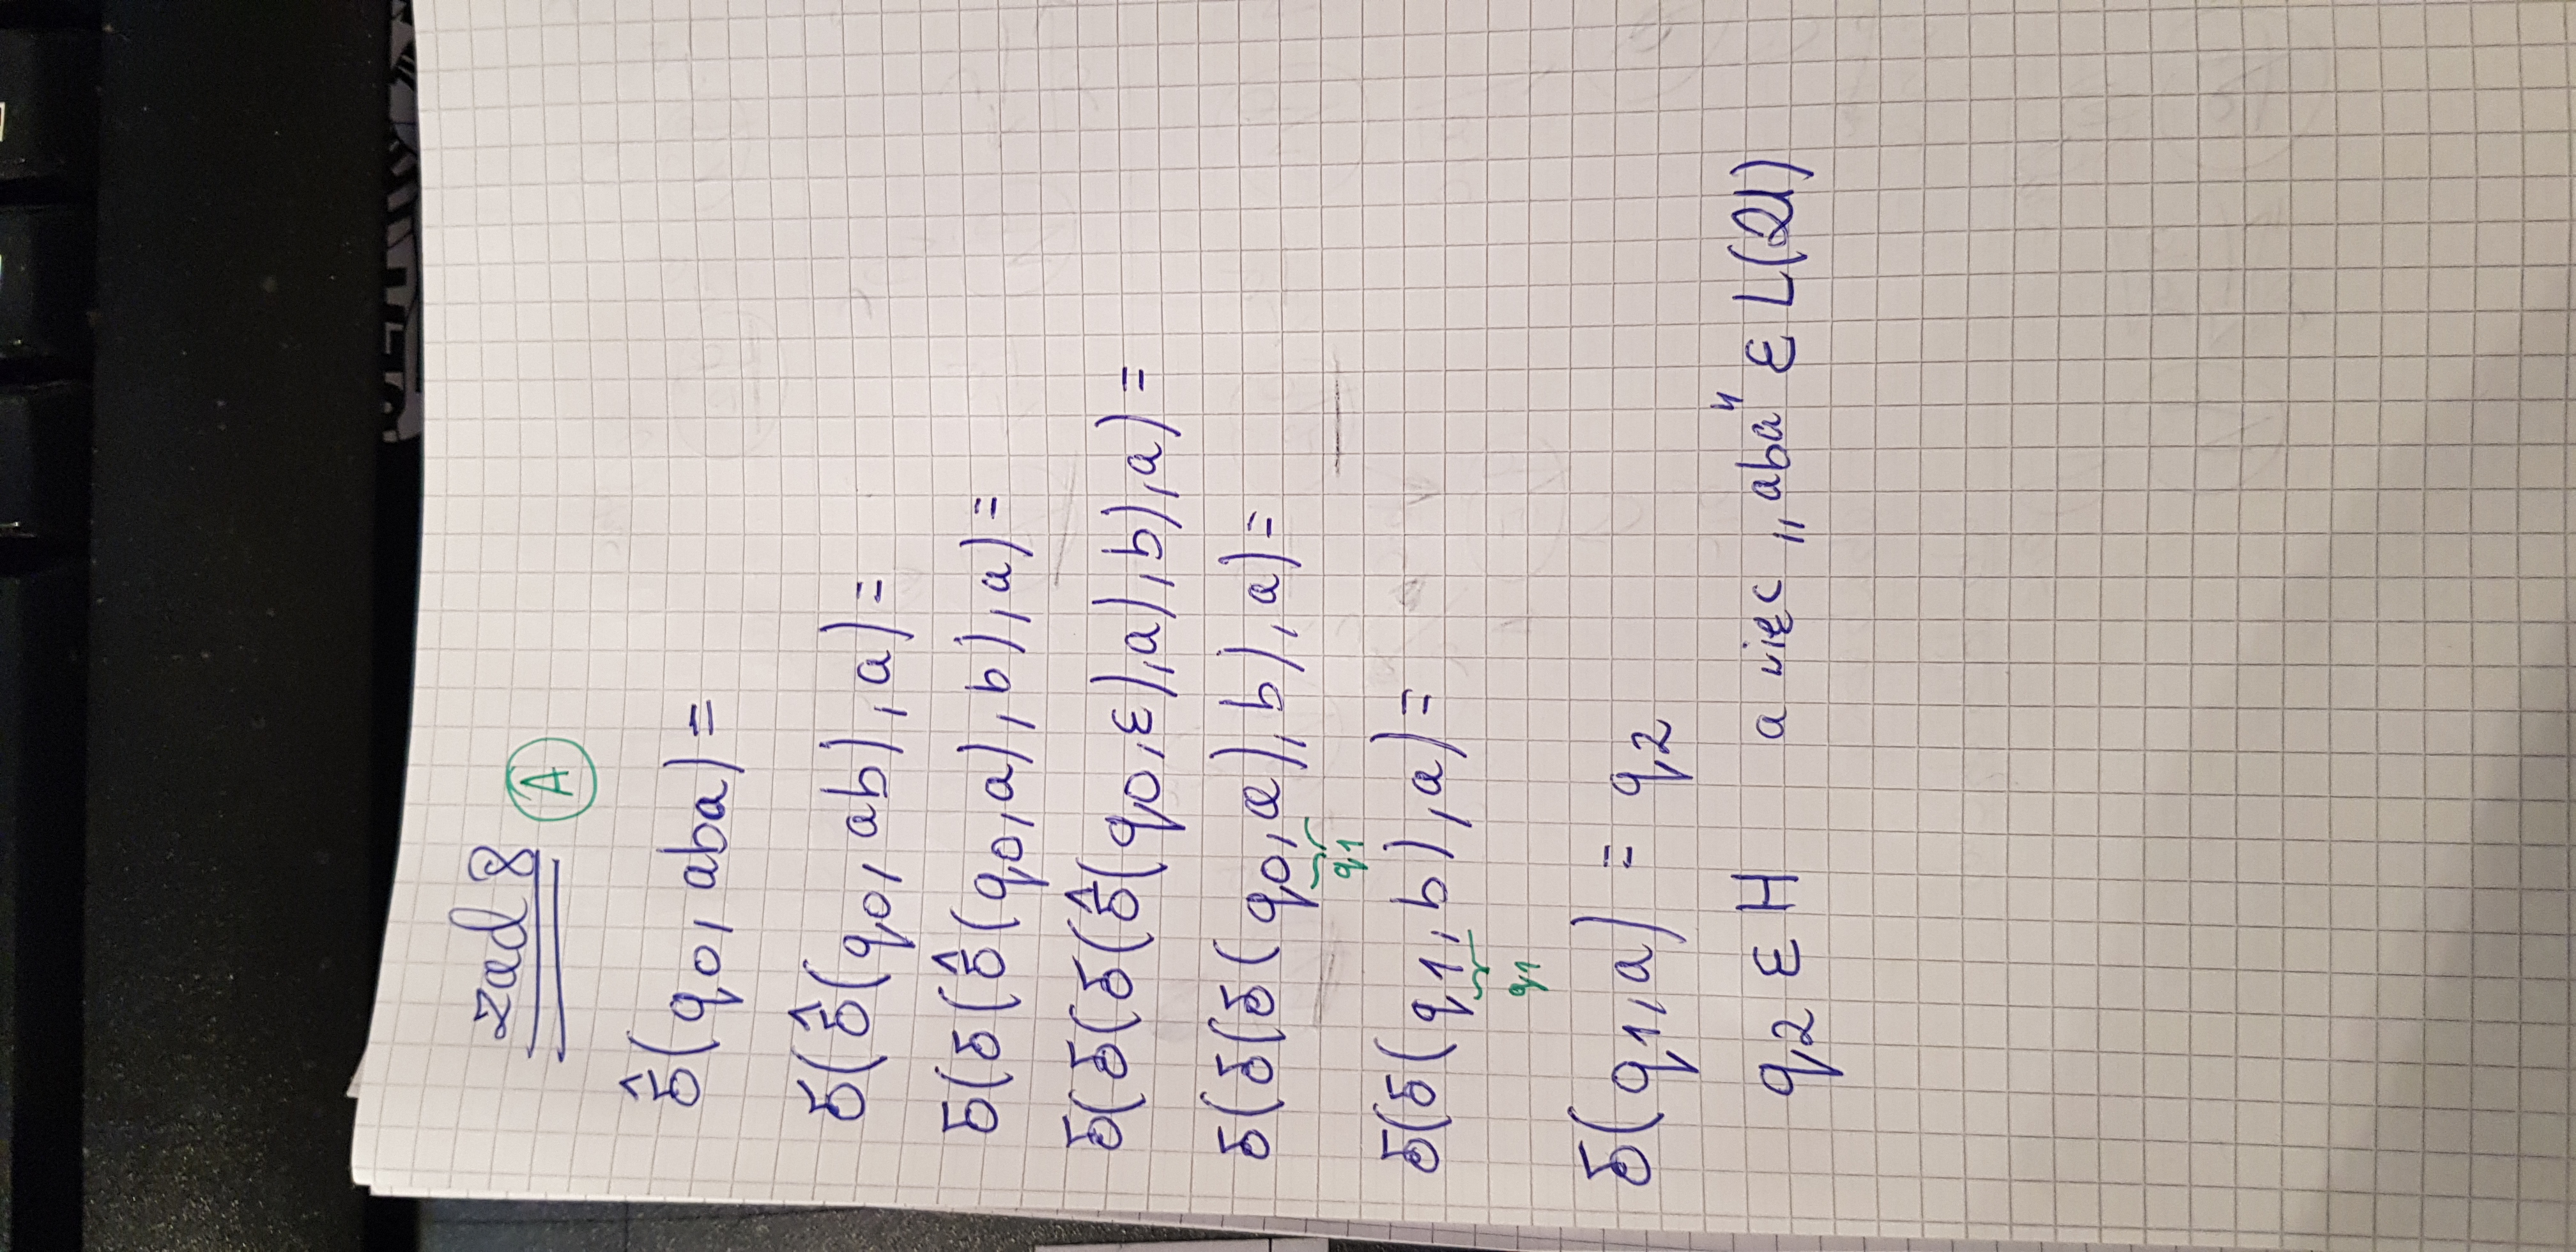 zad 8 A
δ̂(q0, aba) =
δ(δ̂(q0, ab), a) =
δ(δ(δ̂(q0, a), b), a) =
δ(δ(δ(δ̂(q0, ε), a), b), a) =
δ(δ(δ(q0, a), b), a) =
q1
δ(δ(q1, b), a) =
q1
δ(q1, a) = q2
q2 ∈ H a więc „aba" ∈ L(𝔄)